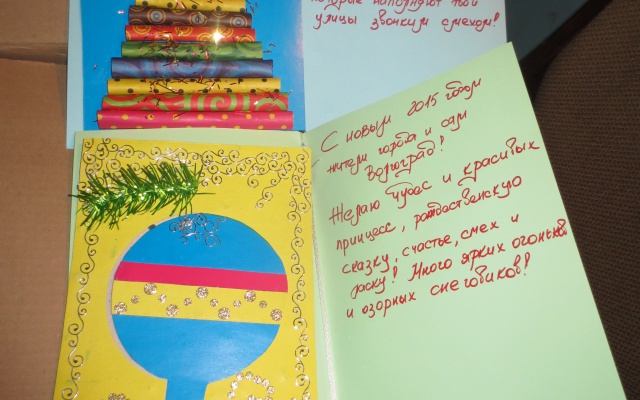 которые наполняют твои
улицы звонким смехом!
С новым 2015 годом
жители города и сам
Волгоград!
Желаю чудес и красивых
принцесс, рождественскую
сказку, счастье, смех и
ласку! Много ярких огоньков
и озорных снеговиков!